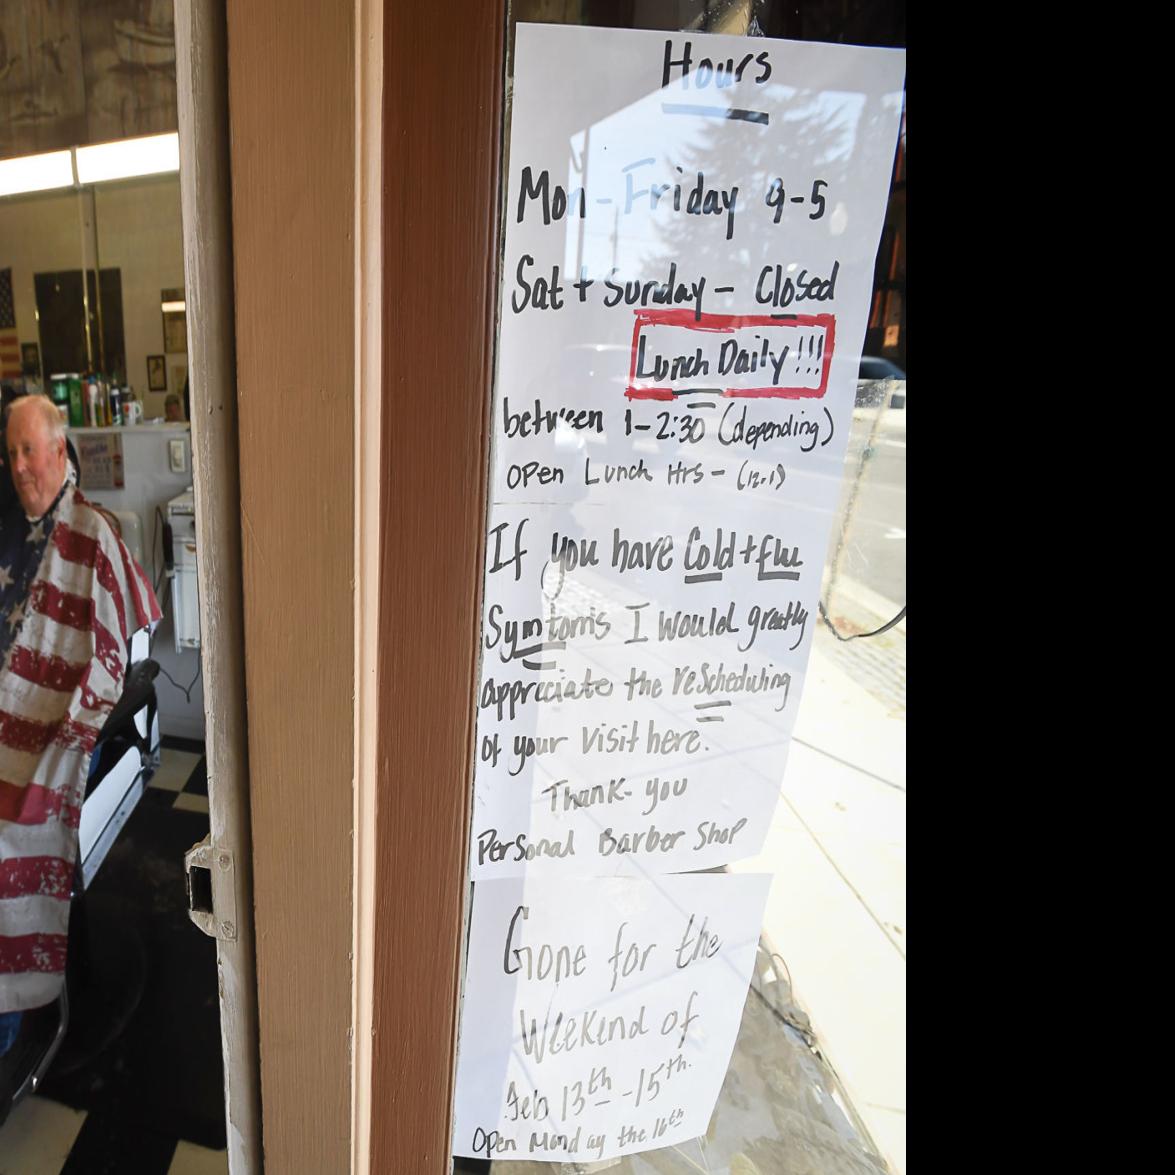 Hours
Mon-Friday 9-5
Sat + Sunday - Closed
Lunch Daily!!!
between 1-2:30 (depending)
OPen Lunch Hrs - (12-1)
If you have Cold + flu
Symtoms I would greatly
appreciate the reScheduling
of your visit here.
Thank-you
Personal Barber Shop
Gone for the
Weekend of
Feb 13th-15th.
Open Monday the 16th